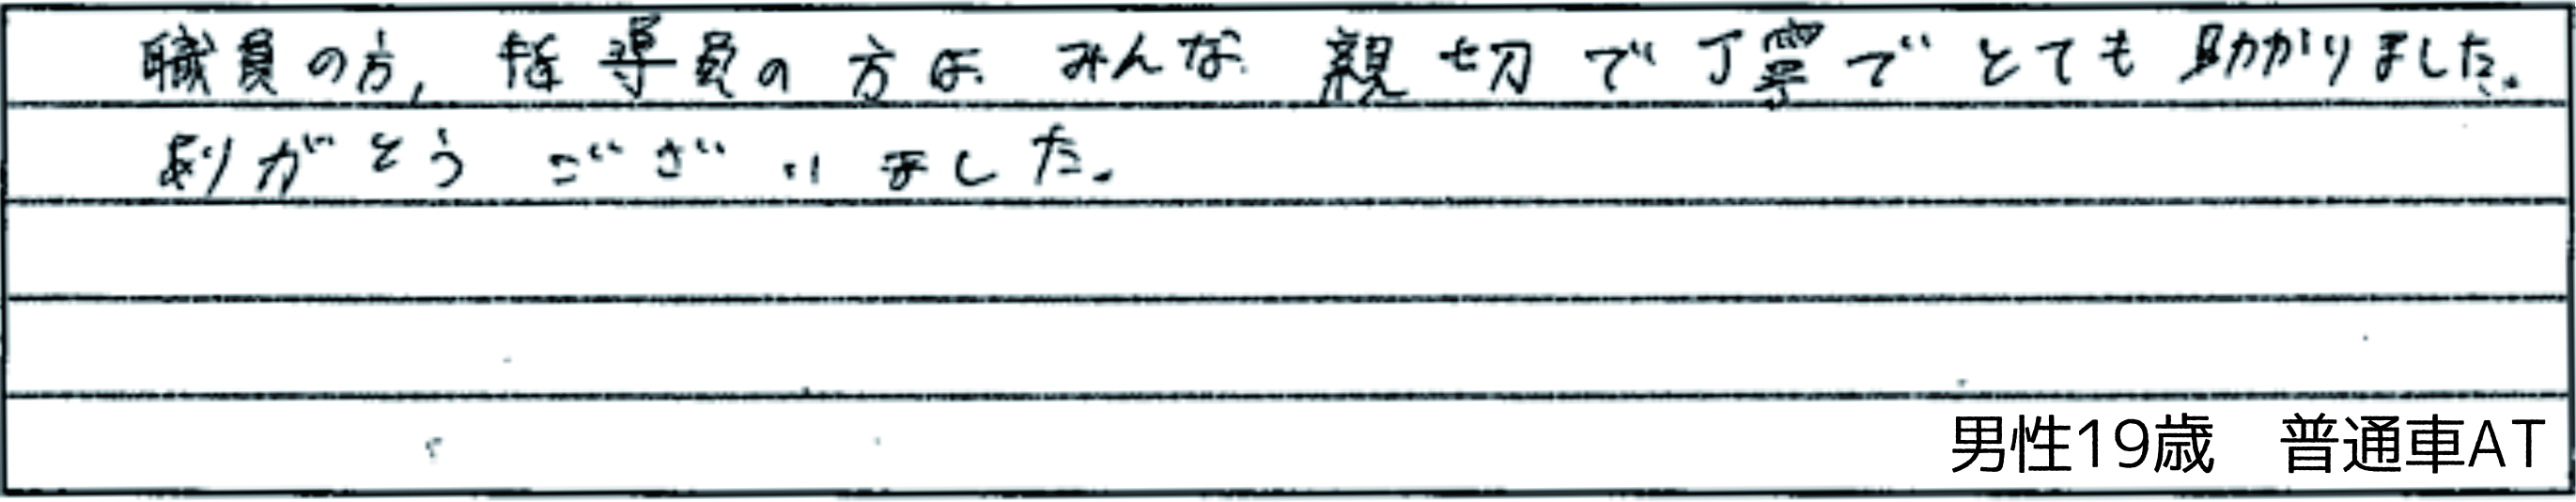 職員の方，指導員の方は みんな 親切で丁寧でとても助かりました。
ありがとうございました。
男性19歳　普通車AT